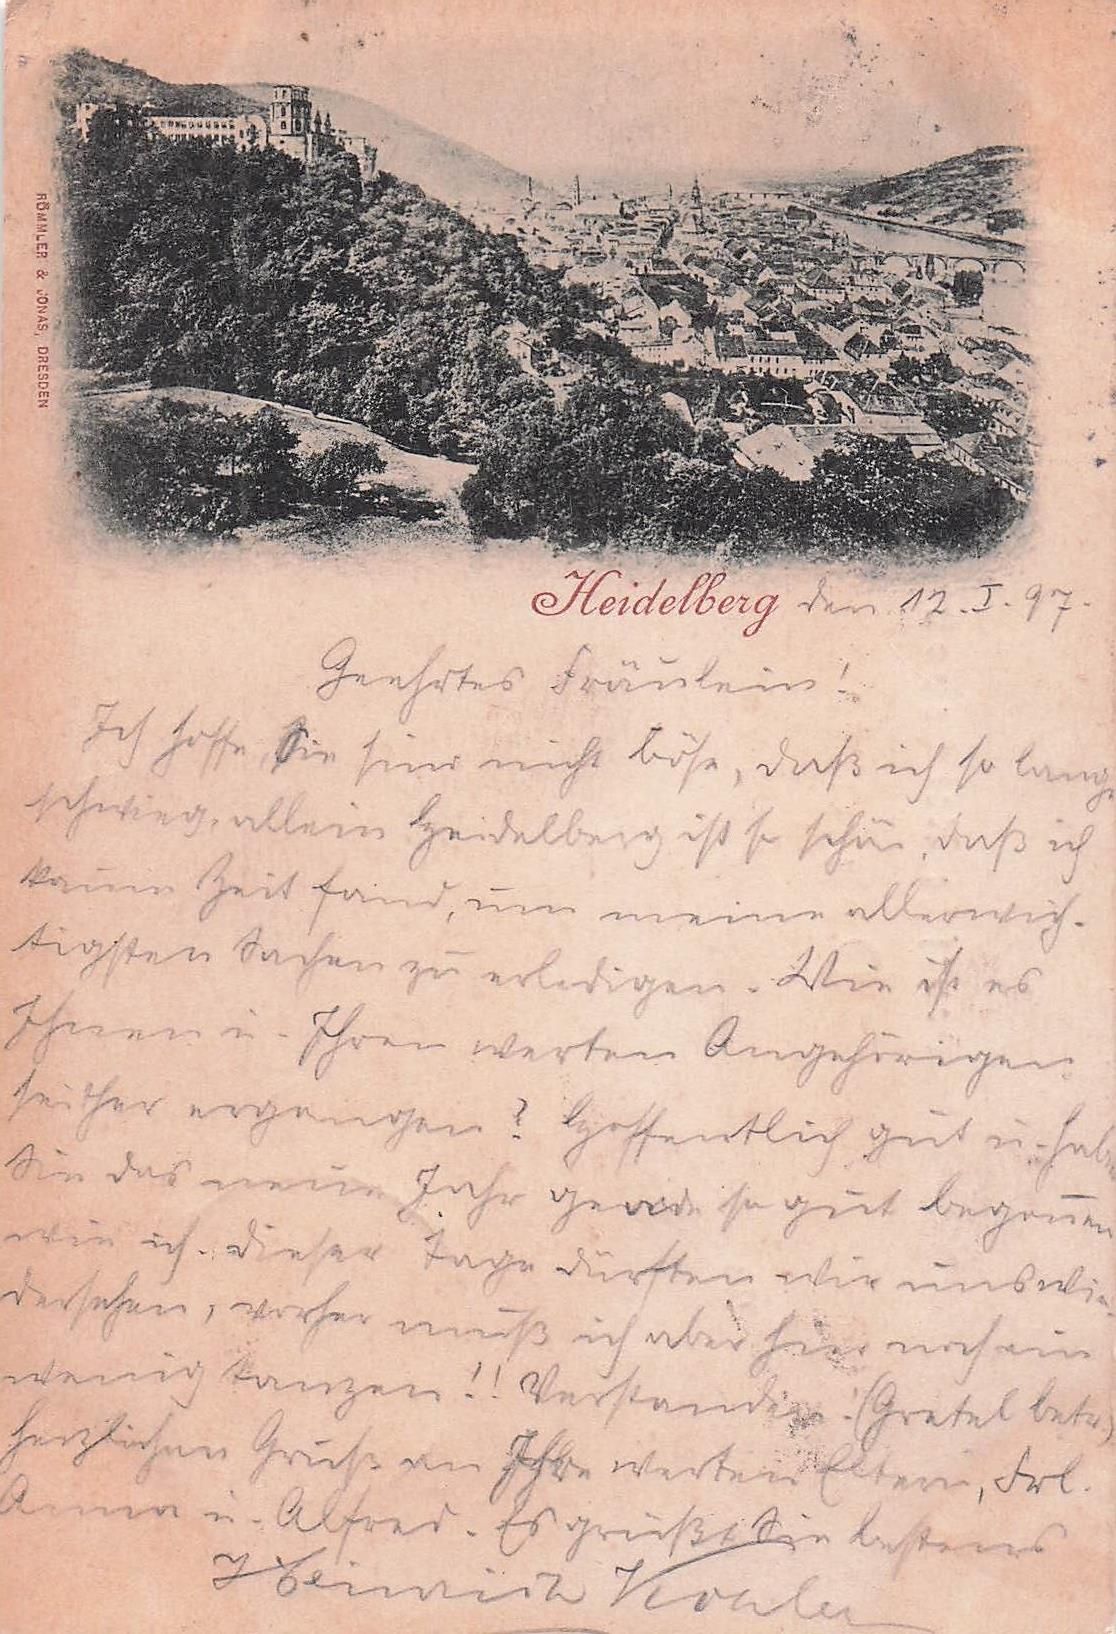 RÖMMLER & JONAS, DRESDEN
Heidelberg den 12. I. 97.
Geehrtes Fräulein!
Ich hoffe, Sie sind nicht böse, daß ich so lange
schwieg, allein Heidelberg ist so schön, daß ich
kaum Zeit fand, um meine allerwich-
tigsten Sachen zu erledigen. Wie ist es
Ihnen u. Ihren werten Angehörigen
seither ergangen? Hoffentlich gut u. haben
Sie das neue Jahr gerade so gut begonnen
wie ich. Dieser Tage dürften wir uns wie-
dersehen, vorher muß ich aber hier noch ein
wenig tanzen!! Verstanden! (Gretel betr.)
Herzlichen Gruß an Ihre werten Eltern, Frl.
Anna u. Alfred. Es grüßt Sie bestens
Heinrich